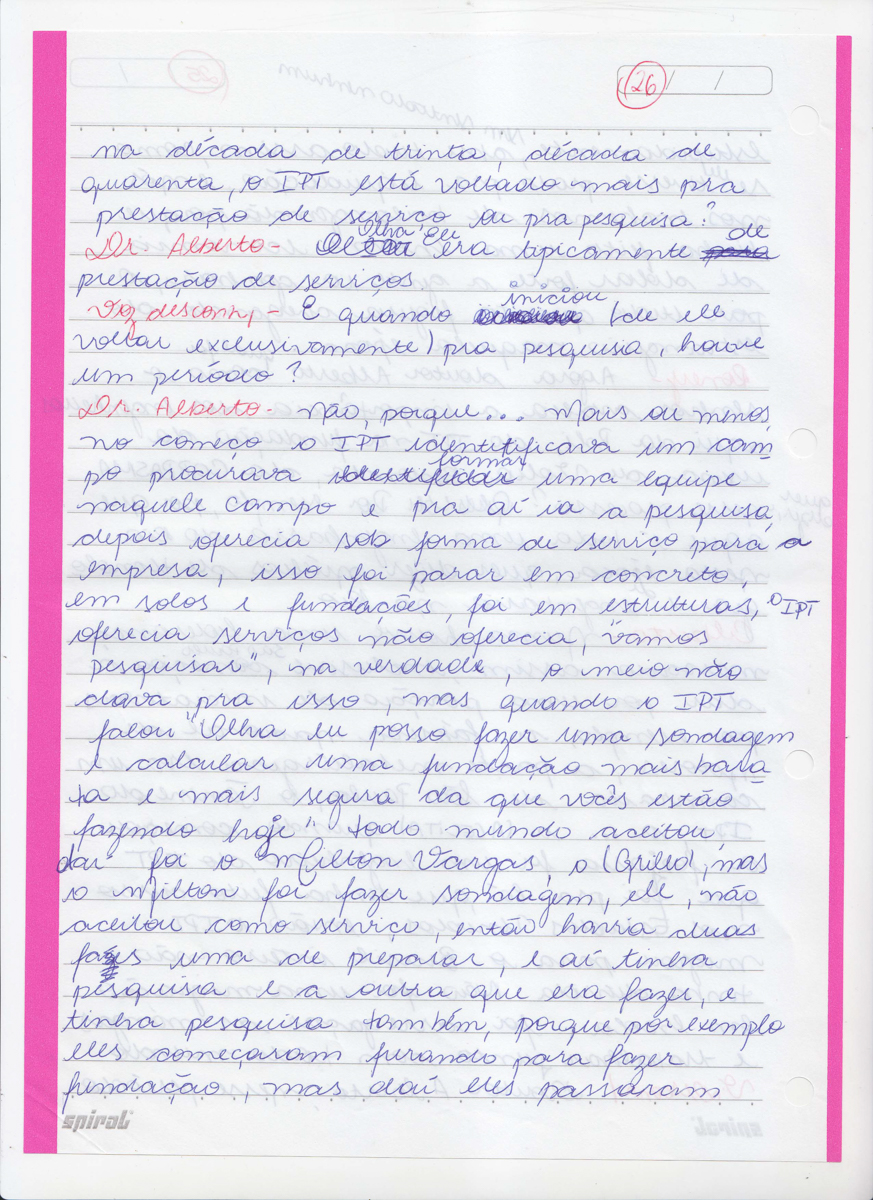 26 / /
na década de trinta, década de
quarenta, o IPT está voltado mais pra
prestação de serviço ou pra pesquisa?
Dr. Alberto - Olha Ele era tipicamente de
prestação de serviços.
Voz desconh, - E quando iniciou (de ele
voltar exclusivamente) pra pesquisa, houve
um período?
Dr. Alberto - Não, porque... Mais ou menos,
no começo o IPT identificava um cam
po procurava formar uma equipe
naquele campo e pra aí ia a pesquisa,
depois oferecia sob forma de serviço para a
empresa, isso foi parar em concreto,
em solos e fundações, foi em estruturas, o IPT
oferecia serviços não oferecia, "vamos
pesquisar", na verdade, o meio não
dava pra isso, mas quando o IPT
falou "Olha eu posso fazer uma sondagem
e calcular uma fundação mais bara
ta e mais segura da que vocês estão
fazendo hoje" todo mundo aceitou,
daí foi o Milton Vargas, o (Grillo), mas
o Milton foi fazer sondagem, ele, não
aceitou como serviço, então havia duas
fases uma de preparar, e aí tinha
pesquisa e a outra que era fazer, e
tinha pesquisa também, porque por exemplo
eles começaram furando para fazer
fundação, mas daí eles passaram
spiral